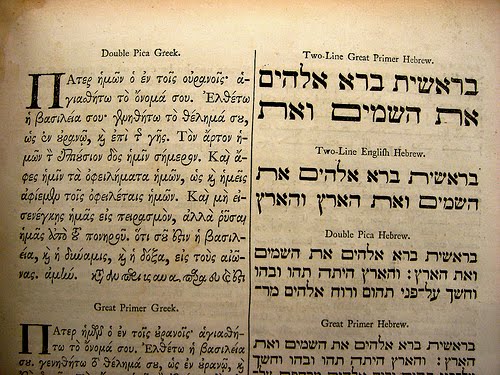 Double Pica Greek.
ΠΑτερ ἡμῶν ὁ ἐν τοῖς οὐρανοῖς· ἁ-
γιασθήτω τὸ ὄνομά σου. Ἐλθέτω
ἡ βασιλεία σου· γενηθήτω τὸ θέλημά σου,
ὡς ἐν οὐρανῷ, ϗ ἐπὶ τ̂ γῆς. Τὸν ἄρτον ἡ-
μῶν τ̀ ἐπιούσιον δὸς ἡμῖν σήμερον. Καὶ ἄ-
φες ἡμῖν τὰ ὀφειλήματα ἡμῶν, ὡς ϗ ἡμεῖς
ἀφίεμεν τοῖς ὀφειλέταις ἡμῶν. Καὶ μὴ εἰ-
σενέγκῃς ἡμᾶς εἰς πειρασμὸν, ἀλλὰ ῥῦσαι
ἡμᾶς ἀπὸ τοῦ πονηροῦ. ὅτι σοῦ ἐστιν ἡ βασι-
λεία, ϗ ἡ δύναμις, ϗ ἡ δόξα, εἰς τοὺς αἰῶ-
νας. ἀμήν.
Great Primer Greek.
ΠΑτερ ἡμῶν ὁ ἐν τοῖς οὐρανοῖς· ἁγιασθή-
τω τὸ ὄνομά σου. Ἐλθέτω ἡ βασιλεία
σου. γενηθήτω τὸ θέλημά σου, ὡς ἐν οὐρανῷ, ϗ
Two-Line Great Primer Hebrew.
בראשית ברא אלהים
את השמים ואת
Two-Line Engliſh Hebrew.
בראשית ברא אלהים את
השמים ואת הארץ והארץ
Double Pica Hebrew.
בראשית ברא אלהים את השמים
ואת הארץ: והארץ היתה תהו ובהו
וחשך על־פני תהום ורוח אלהים מר־
Great Primer Hebrew.
בראשית ברא אלהים את השמים ואת
הארץ: והארץ היתה תהו ובהו וחשך